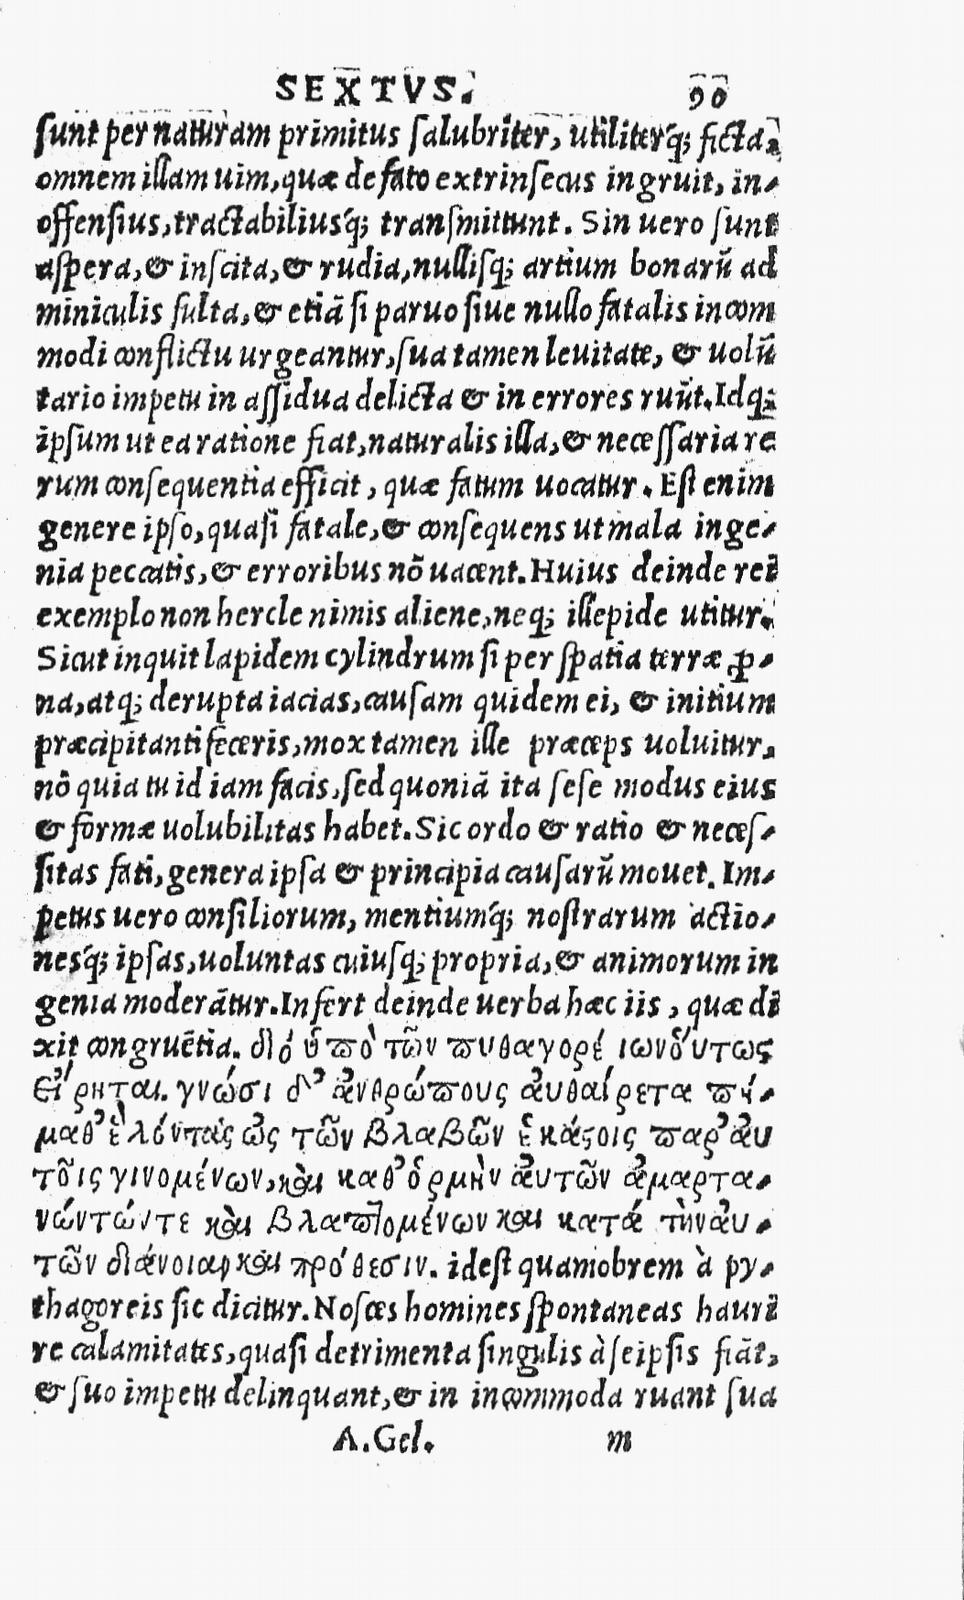 SEXTVS. 90
sunt per naturam primitus salubriter, utiliterq́; ficta,
omnem illam uim, quæ de fato extrinsecus ingruit, in-
offensius, tractabiliusq́; transmittunt. Sin uero sunt
aspera, & inscita, & rudia, nullisq; artium bonarũ ad
miniculis fulta, & etiã si paruo siue nullo fatalis incom
modi conflictu urgeantur, sua tamen leuitate, & uolũ
tario impetu in assidua delicta & in errores ruũt. Idq;
ipsum ut ea ratione fiat, naturalis illa, & necessaria re
rum consequentia efficit, quæ fatum uocatur. Est enim
genere ipso, quasi fatale, & consequens ut mala inge-
nia peccatis, & erroribus nõ uacent. Huius deinde rei
exemplo non hercle nimis aliene, neq; illepide utitur.
Sicut inquit lapidem cylindrum si per spatia terræ ꝓ-
na, atq; derupta iacias, causam quidem ei, & initium
præcipitanti feceris, mox tamen ille præceps uoluitur,
nõ quia tu id iam facis, sed quoniã ita sese modus eius
& formæ uolubilitas habet. Sic ordo & ratio & neces-
sitas fati, genera ipsa & principia causarũ mouet. Im-
petus uero consiliorum, mentiumq́; nostrarum actio-
nesq́; ipsas, uoluntas cuiusq; propria, & animorum in
genia moderãtur. Infert deinde uerba hæc iis, quæ di
xit congruẽtia. διό ὑπὸ τῶν πυθαγορέ ιωνὅυτως
Εἴρηται. γνώσι δ᾽ ἀνθρώπους ἀυθαίρετα πή-
μαθ᾽ ἑλόντας ὡς τῶν βλαβῶν ἑκάϛοις παρ᾽ ἀυ
τοῖς γινομένων, καὶ καθ᾽ ὁρμὴν ἀυτῶν ἁμαρτα-
νώντώντε καὶ βλαπτομένων καὶ κατά τὴν ἀυ-
τῶν διάνοιαν καὶ πρόθεσιν. idest quamobrem à py-
thagoreis sic dicitur. Nosces homines spontaneas hauri
re calamitates, quasi detrimenta singulis à seipsis fiãt,
& suo impetu delinquant, & in incommoda ruant sua
A. Gel. m